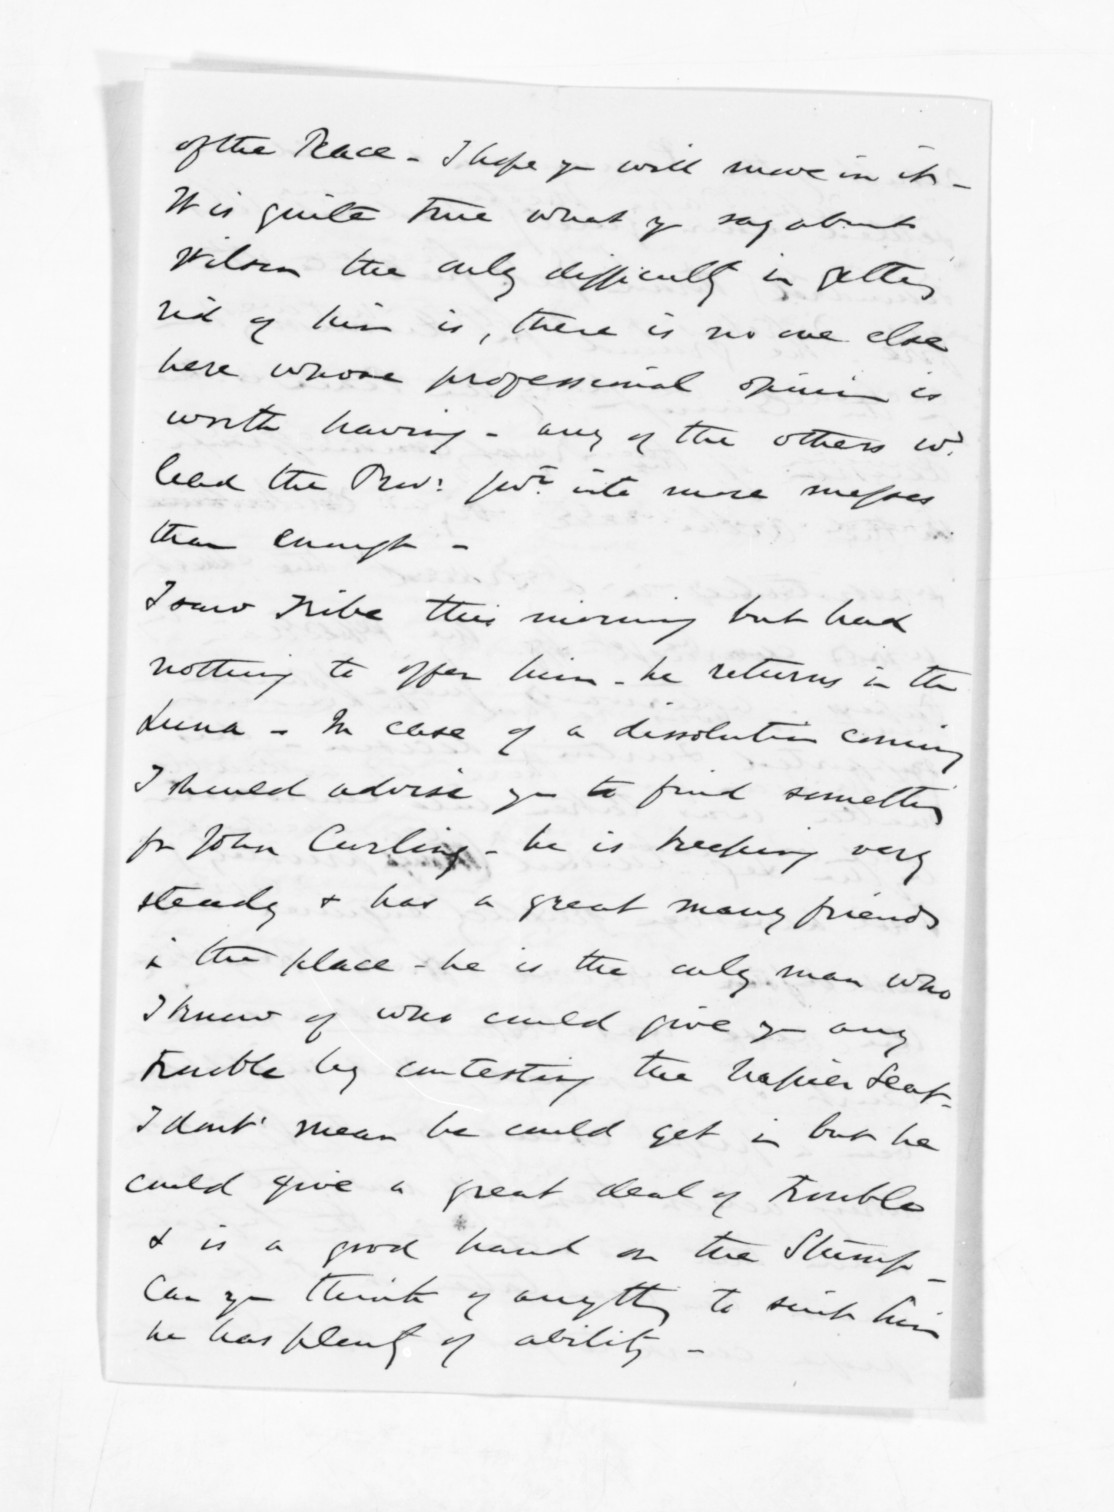 of the Peace - I hope you will move in it -
It is quite true what you say about
Wilson the only difficulty in getting
rid of him is, there is no one else
here whose professional opinion is
worth having - any of the others wd.
lead the Prov: Govt. into more messes
than enough -
I saw Tribe this morning but had
nothing to offer him - he returns in the
Luna - In case of a dissolution coming
I should advise you to find something
for John Curling - he is keeping very
steady & has a great many friends
in the place - he is the only man who
I know of who could give you any
trouble by contesting the Napier Seat -
I dont' mean he could get in but he
could give a great deal of trouble
& is a good hand on the Stump -
Can you think of anything to suit him
he has plenty of ability -